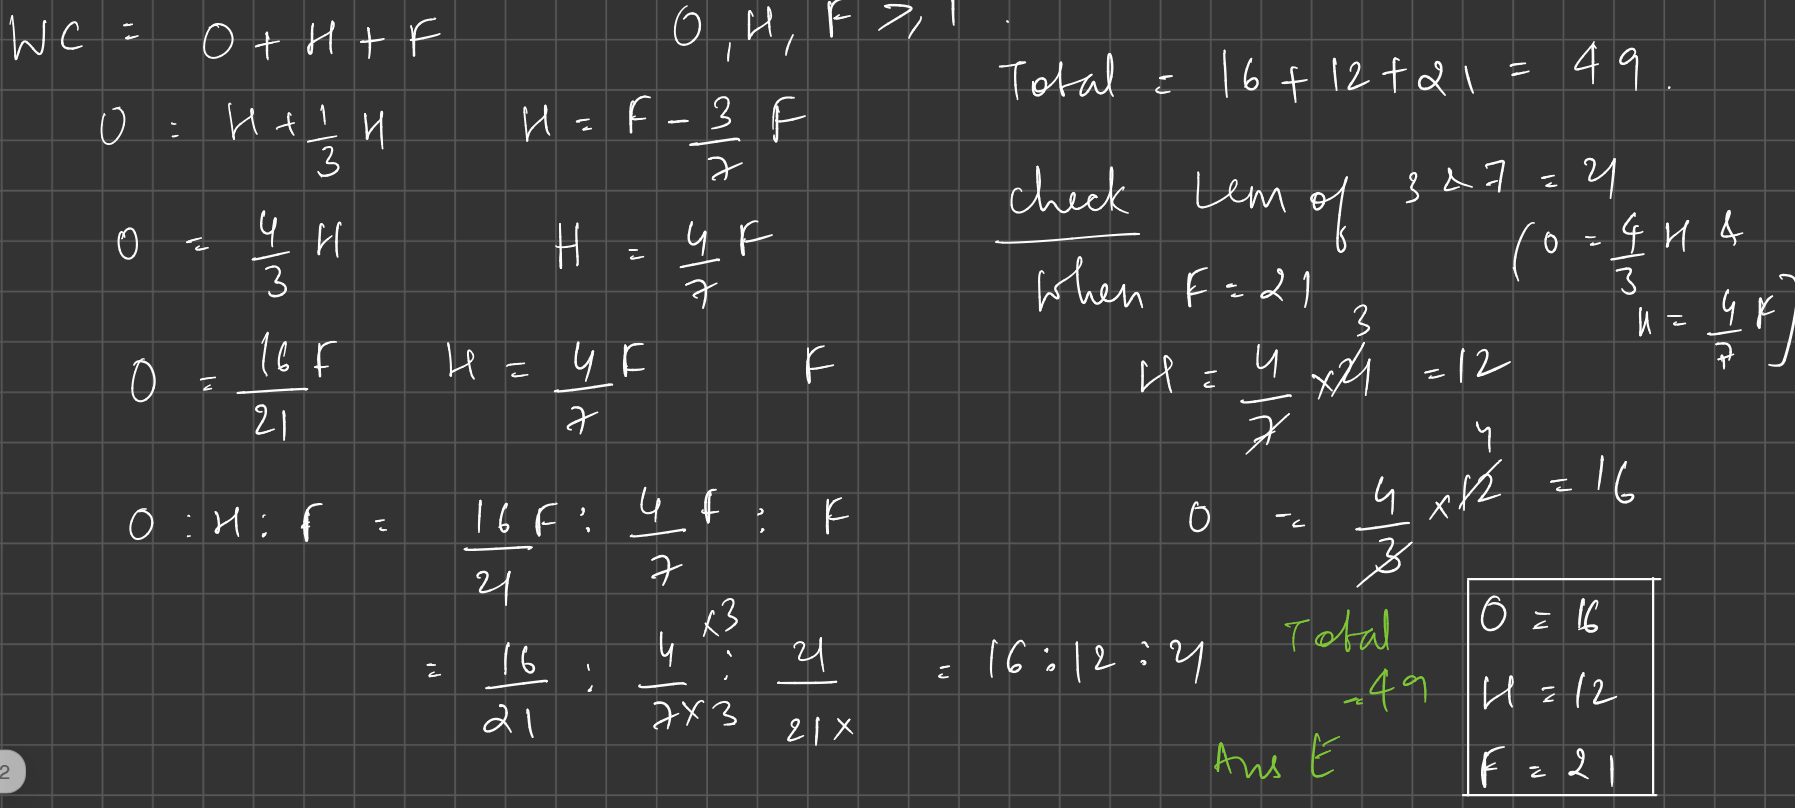 WC = O + H + F
O, H, F ≥ 1.
O = H + 1/3 H
H = F - 3/7 F
O = 4/3 H
H = 4/7 F
O = 16F/21
H = 4F/7
F
O : H : F = 16/21 F : 4/7 F : F
= 16/21 : 4/7 ×3/×3 : 21/21× = 16 : 12 : 21
Total = 16 + 12 + 21 = 49.
Check Lcm of 3 & 7 = 21
(O = 4/3 H &
H = 4/7 F)
When F = 21
H = 4/7 × 21 3 = 12
O = 4/3 × 12 4 = 16
Total
= 49
Ans E
O = 16
H = 12
F = 21
2